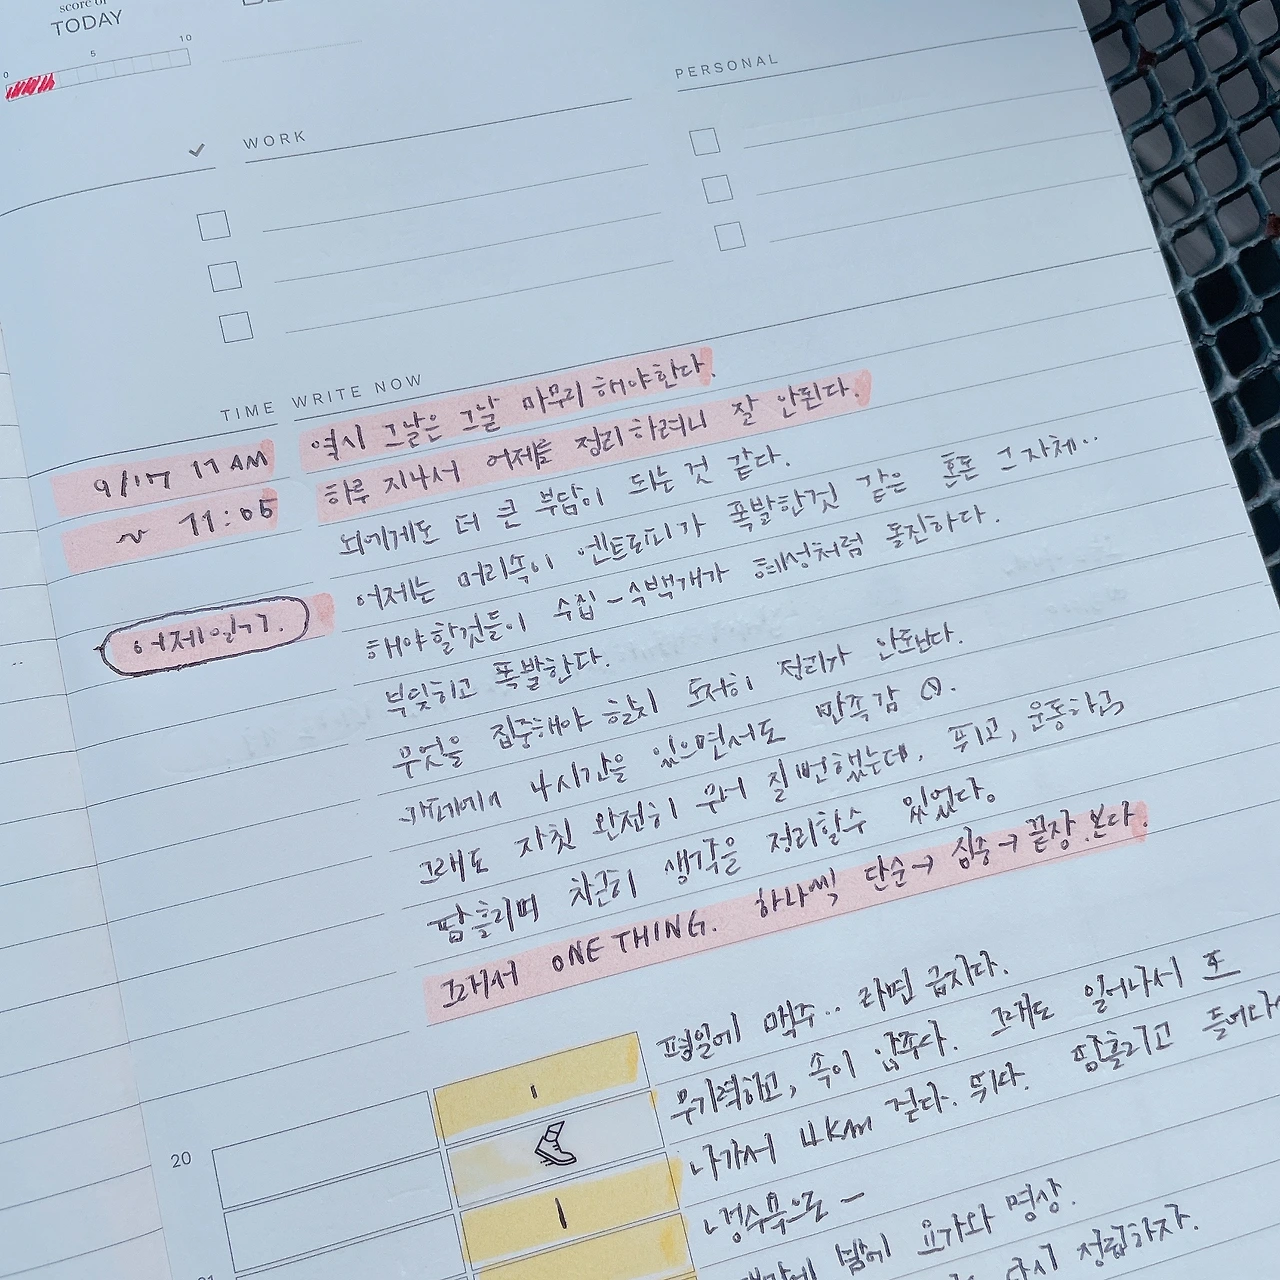 score of
TODAY
0 5 10
WORK
PERSONAL
TIME WRITE NOW
9/17 11 AM
~ 11:05
어제일기.
역시 그날은 그날 마무리 해야한다.
하루 지나서 어제를 정리하려니 잘 안된다.
뇌에게도 더 큰 부담이 되는 것 같다.
어제는 머리속이 엔트로피가 폭발한것 같은 혼돈 그 자체..
해야할것들이 수집-수백개가 혜성처럼 돌진하다.
부딪히고 폭발한다.
무엇을 집중해야 할지 도저히 정리가 안됐다.
카페에서 4시간을 있으면서도 만족감
그래도 자칫 완전히 무너질 번했는데, 뛰고, 운동하고,
땀흘리며 차근히 생각을 정리할수 있었다.
그래서 ONE THING. 하나씩 단순→ 집중→ 끝장.본다.
평일에 맥주.. 라면 금지다.
무기력하고, 속이 안좋다. 그래도 일어나서 또
나가서 4KM 걷다. 뛰다. 땀흘리고 들어다
냉수욕으로 -
밤에 요가와 명상.
다시 정립하자.
20
21